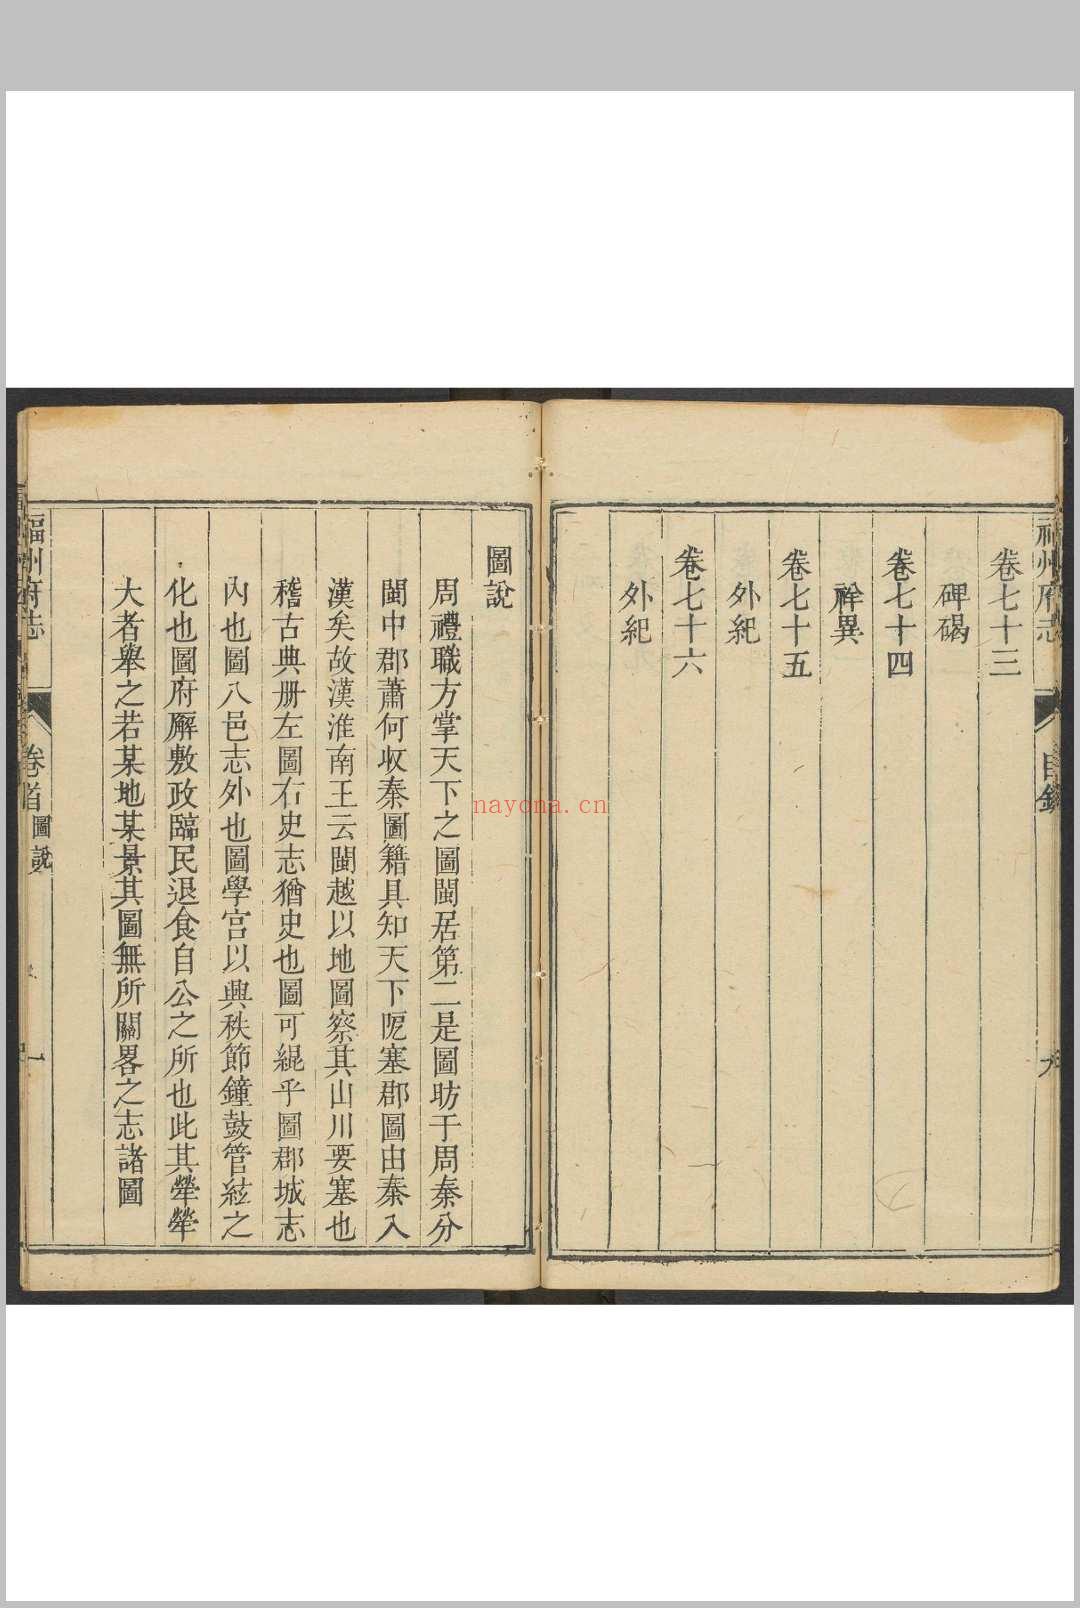 福州府志
目錄
卷七十三
碑碣
卷七十四
祥異
卷七十五
外紀
卷七十六
外紀
圖說
周禮職方掌天下之圖閩居第二是圖昉于周秦分
閩中郡蕭何收秦圖籍具知天下阨塞郡圖由秦入
漢矣故漢淮南王云閩越以地圖察其山川要塞也
稽古典册左圖右史志猶史也圖可緄乎圖郡城志
內也圖八邑志外也圖學宮以興秩節鐘鼓管絃之
化也圖府廨敷政臨民退食自公之所也此其犖犖
大者舉之若某地某景其圖無所關畧之志諸圖
福州府志
卷首
圖說
一
nayona.cn